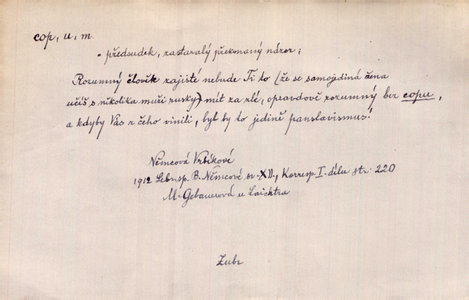 cop, u, m.
- předsudek, zastaralý překonaný názor;
Rozumný člověk zajisté nebude Ti to (že se samojediná žena
učíš s několika muži rusky) mít za zlé, opravdově rozumný bez copu,
a kdyby Vás z čeho vinili, byl by to jedině panslavismus!
Němcová Vrbíkové
1912 Sebr. sp. B. Němcové sv. XII., Korresp. I. dílu str. 220
M. Gebauerová u Laichtra
Zubr